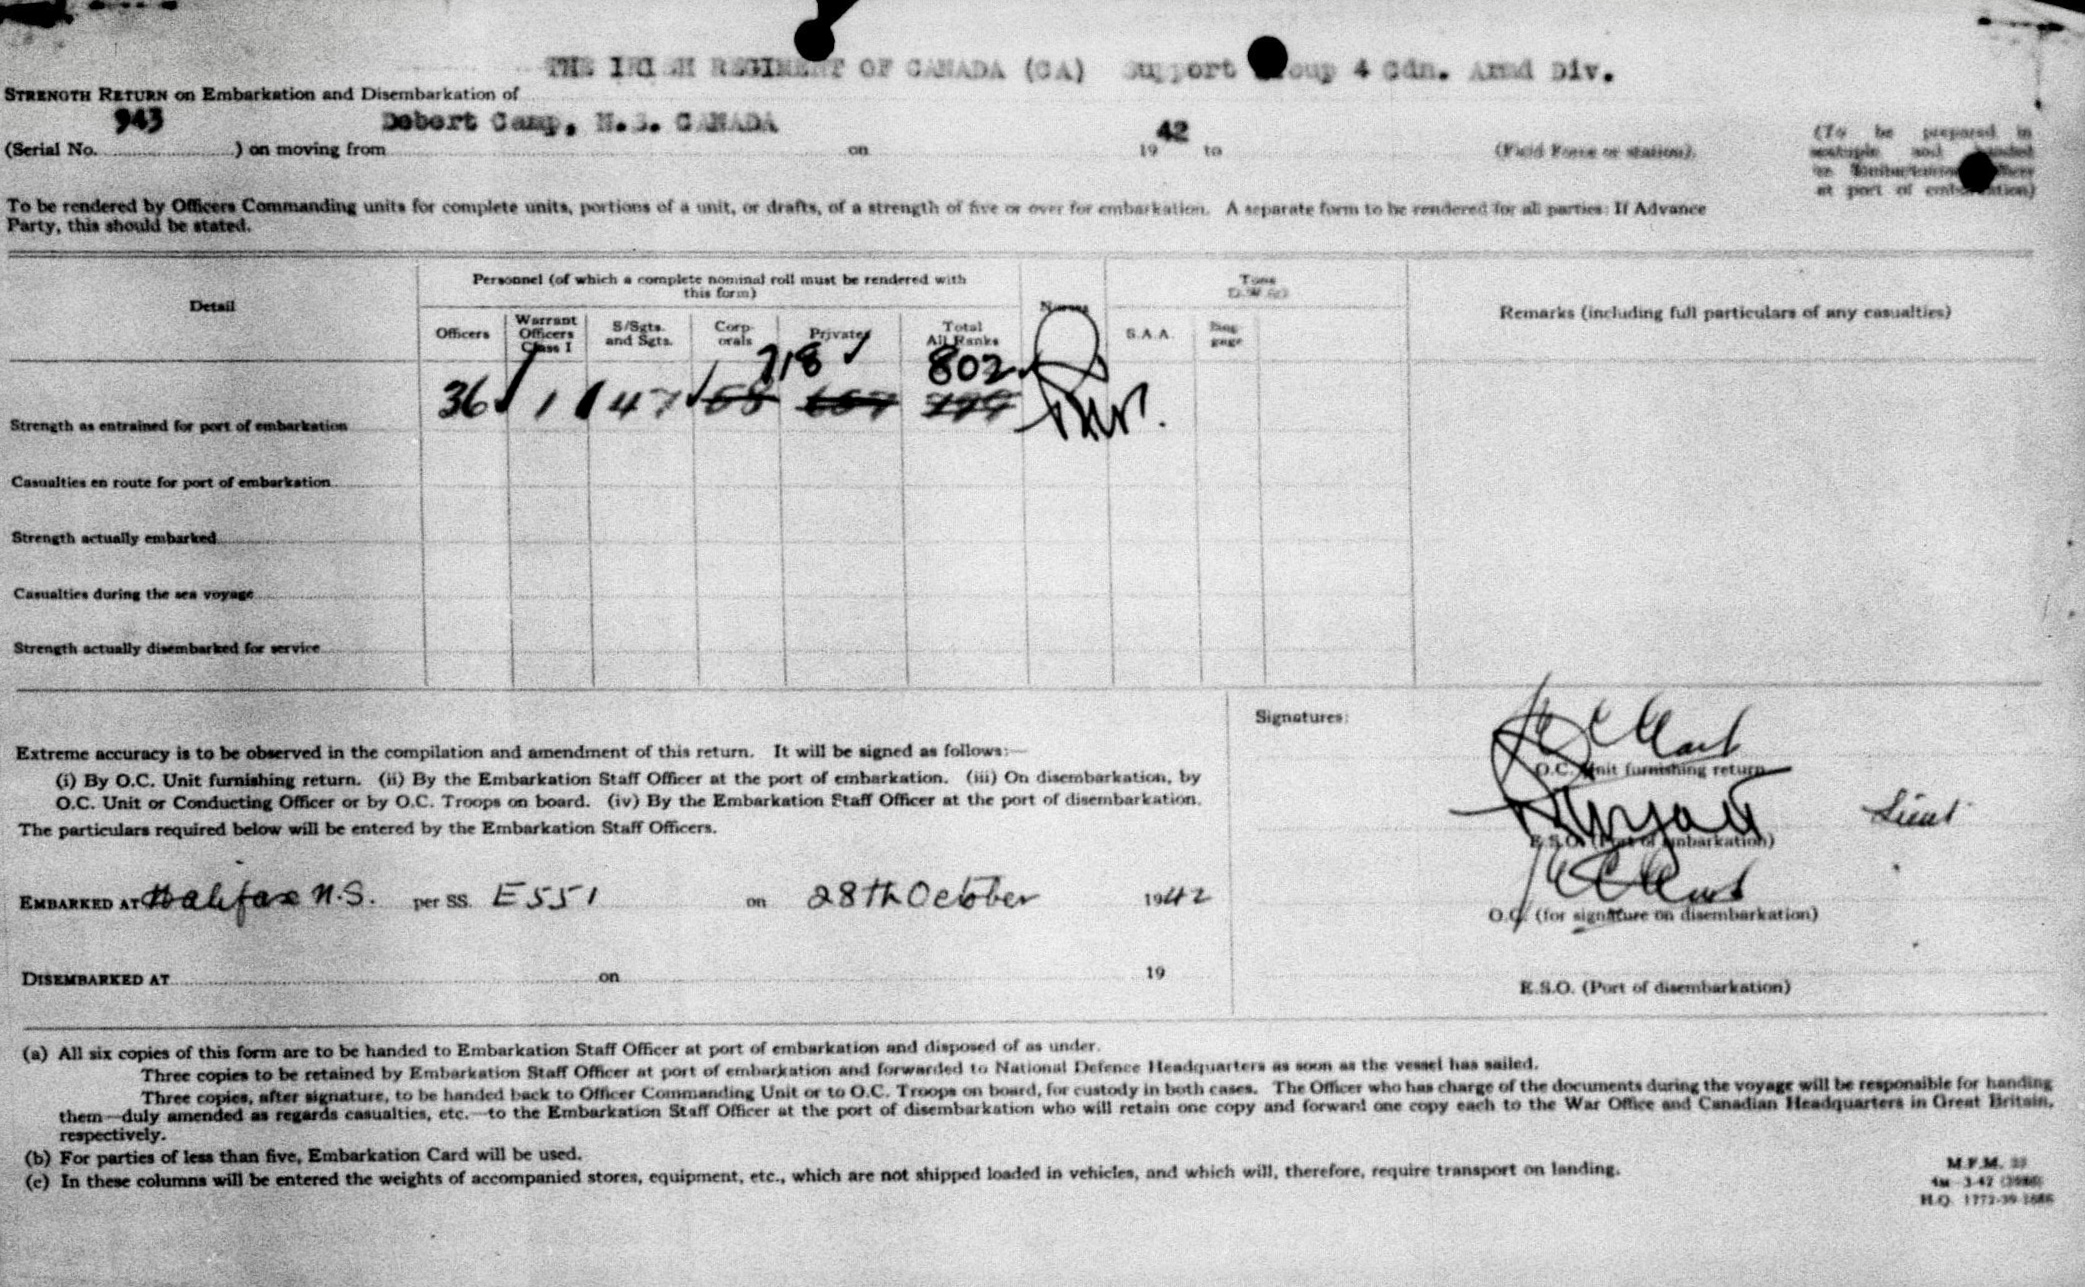 THE IRISH REGIMENT OF CANADA (CA) Support Group 4 Cdn. Armd Div.
STRENGTH RETURN on Embarkation and Disembarkation of
943 Debert Camp, N.S. CANADA 42
(Serial No. ) on moving from on 19 to (Field Force or station).
(To be prepared in
sextuple and handed
to Embarkation Officer
at port of embarkation)
To be rendered by Officers Commanding units for complete units, portions of a unit, or drafts, of a strength of five or over for embarkation. A separate form to be rendered for all parties: If Advance
Party, this should be stated.
Detail
Personnel (of which a complete nominal roll must be rendered with
this form)
Nurses
Tons
Remarks (including full particulars of any casualties)
Officers
Warrant
Officers
Class I
S/Sgts.
and Sgts.
Corp-
orals
Privates
Total
All Ranks
S.A.A.
Bag-
gage
718 802
36 1 47 68
Strength as entrained for port of embarkation
Casualties en route for port of embarkation
Strength actually embarked
Casualties during the sea voyage
Strength actually disembarked for service
Signatures:
Extreme accuracy is to be observed in the compilation and amendment of this return. It will be signed as follows:—
(i) By O.C. Unit furnishing return. (ii) By the Embarkation Staff Officer at the port of embarkation. (iii) On disembarkation, by
O.C. Unit or Conducting Officer or by O.C. Troops on board. (iv) By the Embarkation Staff Officer at the port of disembarkation.
The particulars required below will be entered by the Embarkation Staff Officers.
O.C. Unit furnishing return
Lieut
E.S.O. (Port of embarkation)
EMBARKED AT Halifax N.S. per SS. E551 on 28th October 1942
O.C. (for signature on disembarkation)
DISEMBARKED AT on 19
E.S.O. (Port of disembarkation)
(a) All six copies of this form are to be handed to Embarkation Staff Officer at port of embarkation and disposed of as under.
Three copies to be retained by Embarkation Staff Officer at port of embarkation and forwarded to National Defence Headquarters as soon as the vessel has sailed.
Three copies, after signature, to be handed back to Officer Commanding Unit or to O.C. Troops on board, for custody in both cases. The Officer who has charge of the documents during the voyage will be responsible for handing
them—duly amended as regards casualties, etc.—to the Embarkation Staff Officer at the port of disembarkation who will retain one copy and forward one copy each to the War Office and Canadian Headquarters in Great Britain,
respectively.
(b) For parties of less than five, Embarkation Card will be used.
(c) In these columns will be entered the weights of accompanied stores, equipment, etc., which are not shipped loaded in vehicles, and which will, therefore, require transport on landing.
M.F.M.
H.Q. 1772-39-